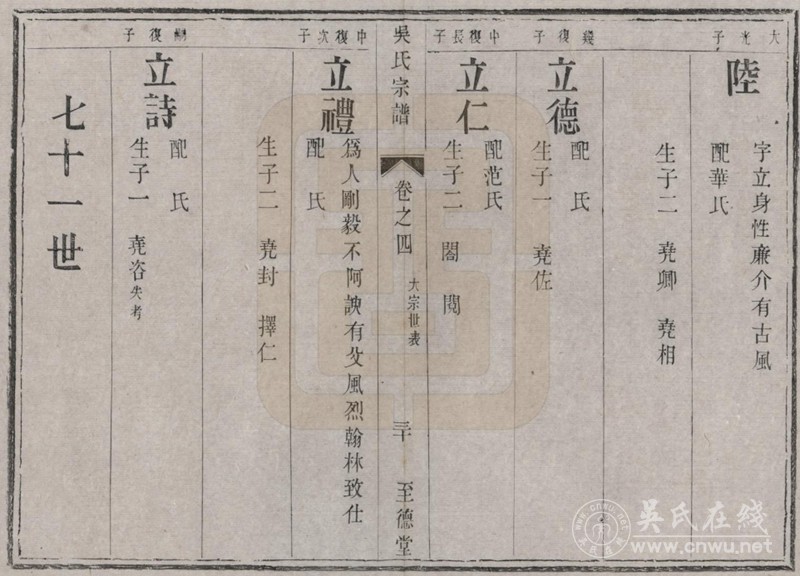 大光子
陸
字立身性廉介有古風
配華氏
生子二 堯卿 堯相
復子
立德
配 氏
生子一 堯佐
中復長子
立仁
配范氏
生子二 閣 閱
吳氏宗譜
卷之四
大宗世表
三十
至德堂
中復次子
立禮
為人剛毅不阿諛有父風烈翰林致仕
配 氏
生子二 堯封 擇仁
復子
立詩
配 氏
生子一 堯咨失考
七十一世
吳氏在线
www.cnwu.net